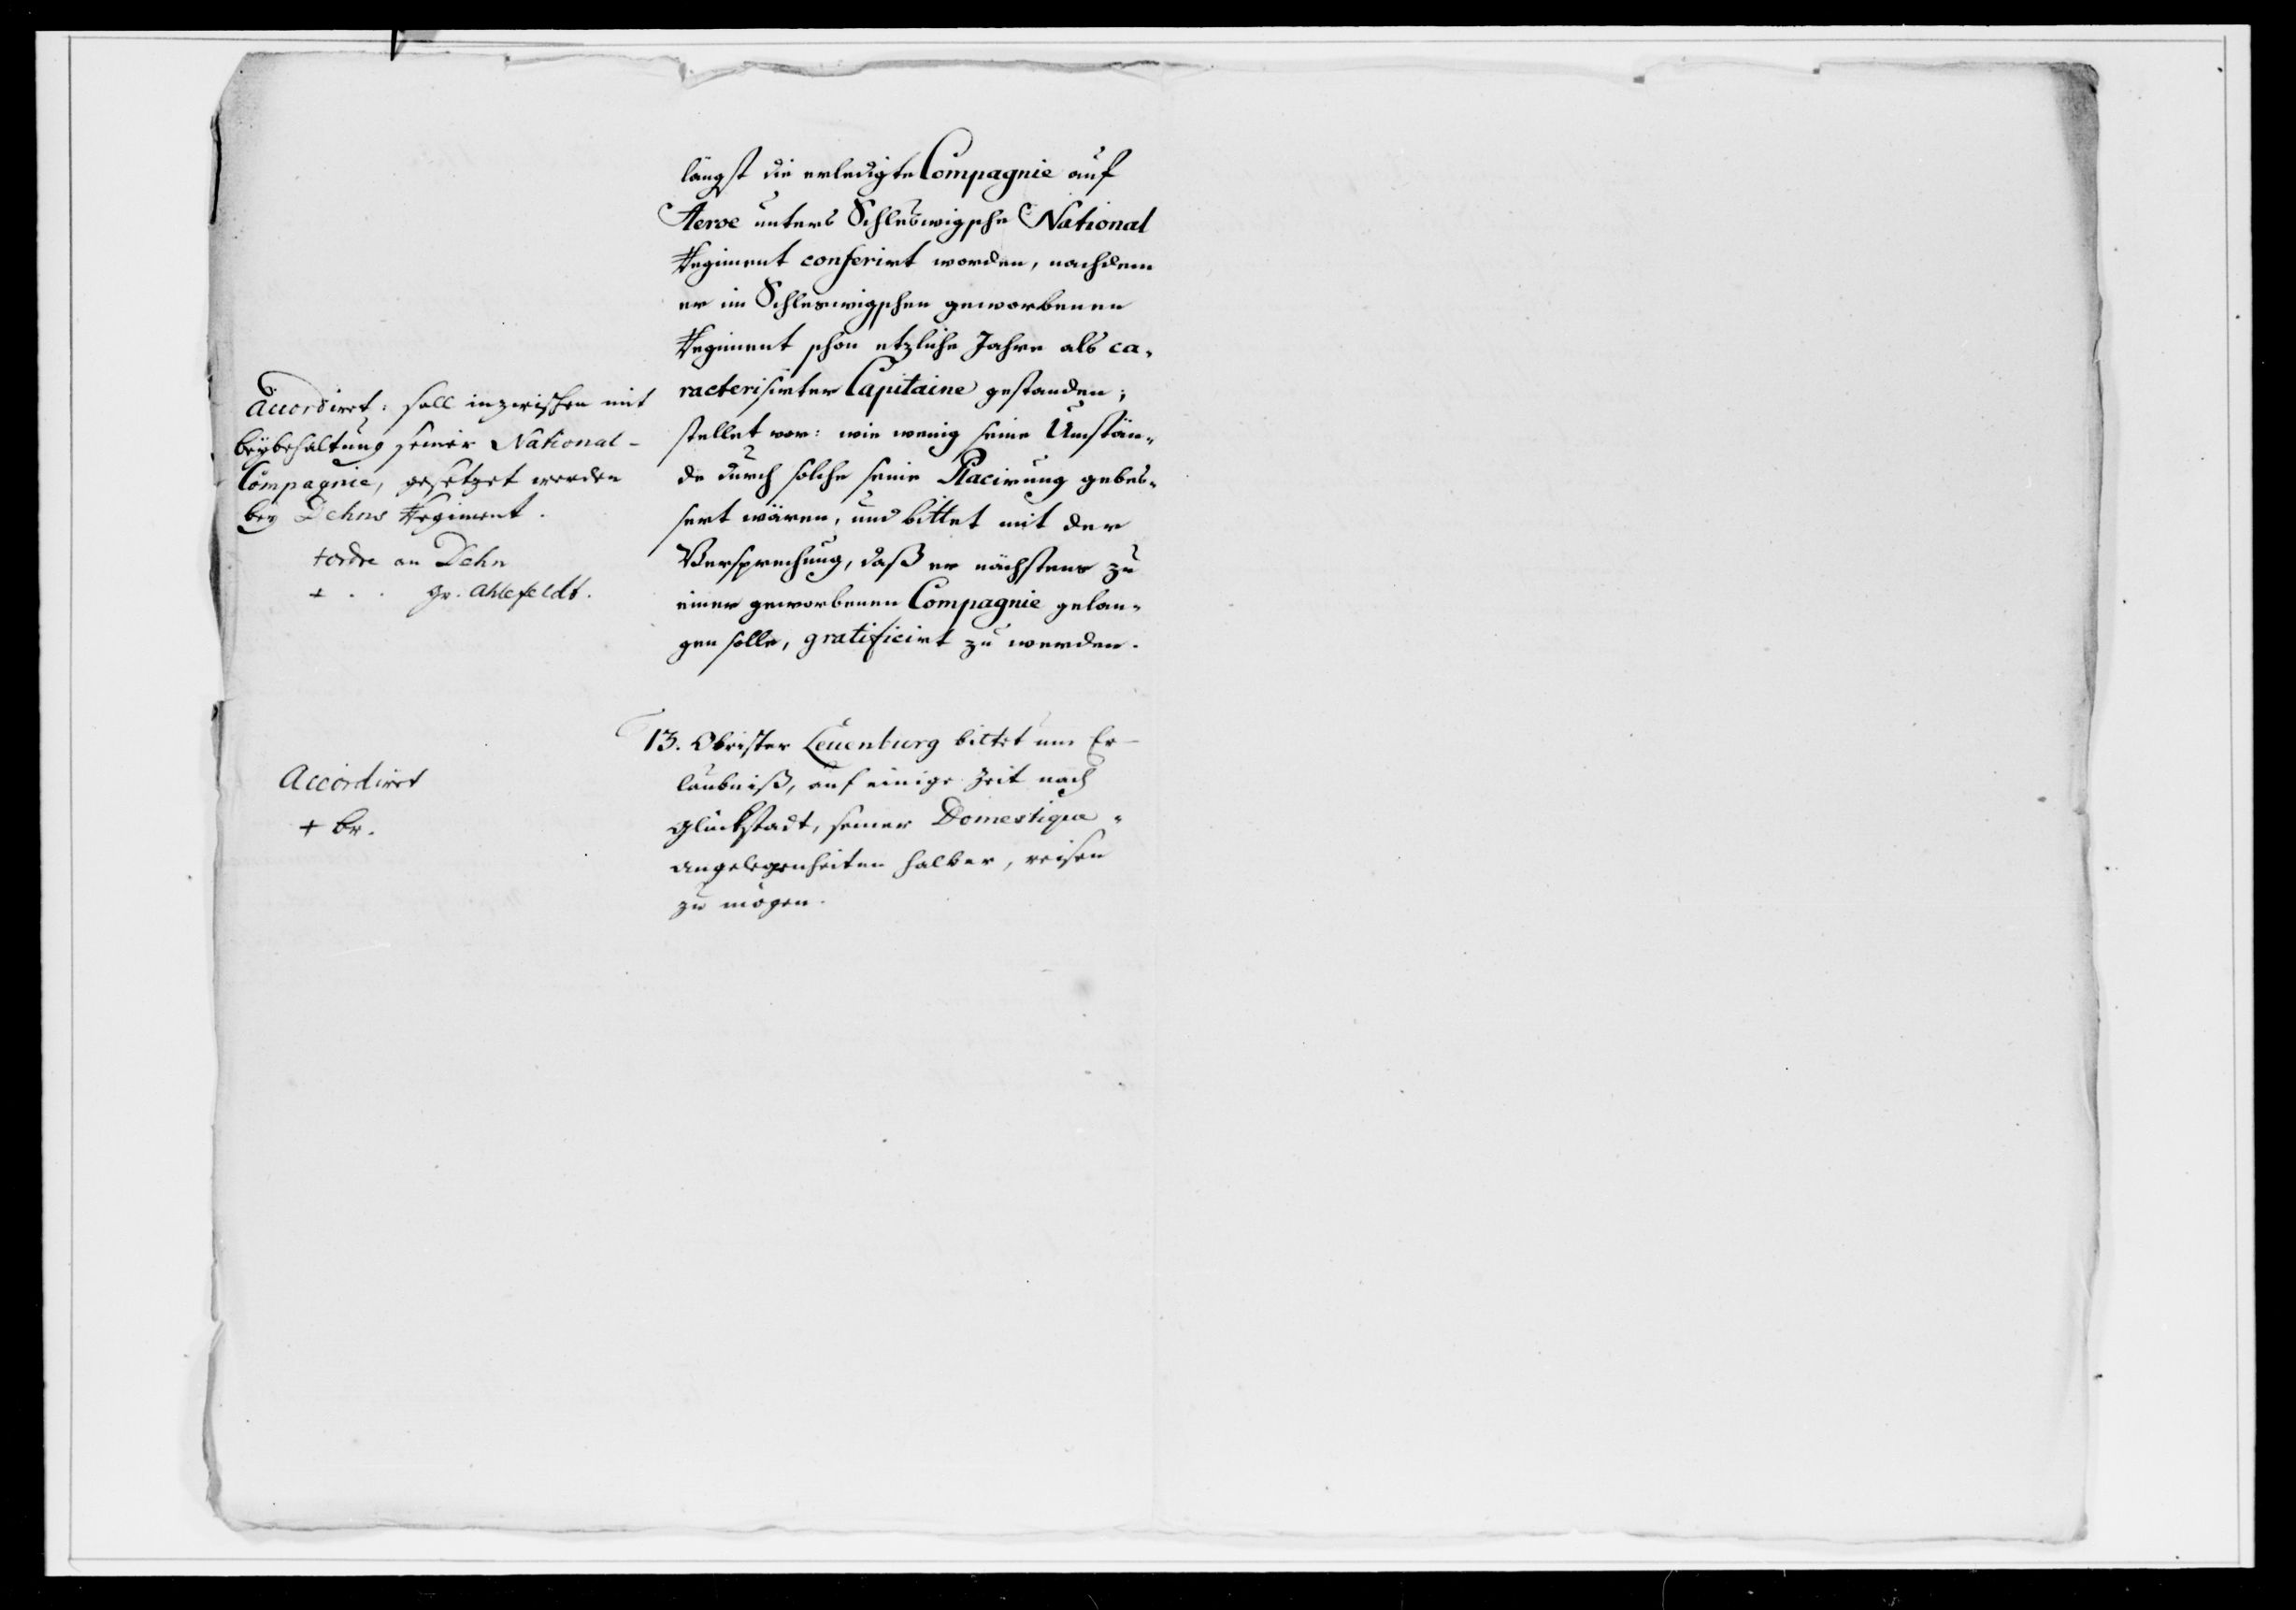 längst die erledigte Compagnie auf
Aeroe unters Schleswigsche National
Regiment conferirt worden, nachdem
er im Schleswigschen geworbenen
Regiment schon etzliche Jahre als ca-
racterisirter Capitaine gestanden;
stellet vor: wie wenig seine Umstän-
de durch solche seine Placirung gebes-
sert wären, und bittet mit der
Versprechung, daß er nächstens zu
einer geworbenen Compagnie gelan-
gen solle, gratificirt zu werden.
Accordiret: soll inzwischen mit
beybehaltung seiner National-
Compagnie, gesetzet werden
bey Dehns Regiment.
+ ordre an Dehn
+ . . gr. Ahlefeldt.
13. Obrister Leuenburg bittet um Er-
laubniß, auf einige Zeit nach
Glückstadt, seiner Domestique-
angelegenheiten halber, reisen
zu mögen.
Accordiret
+ br.